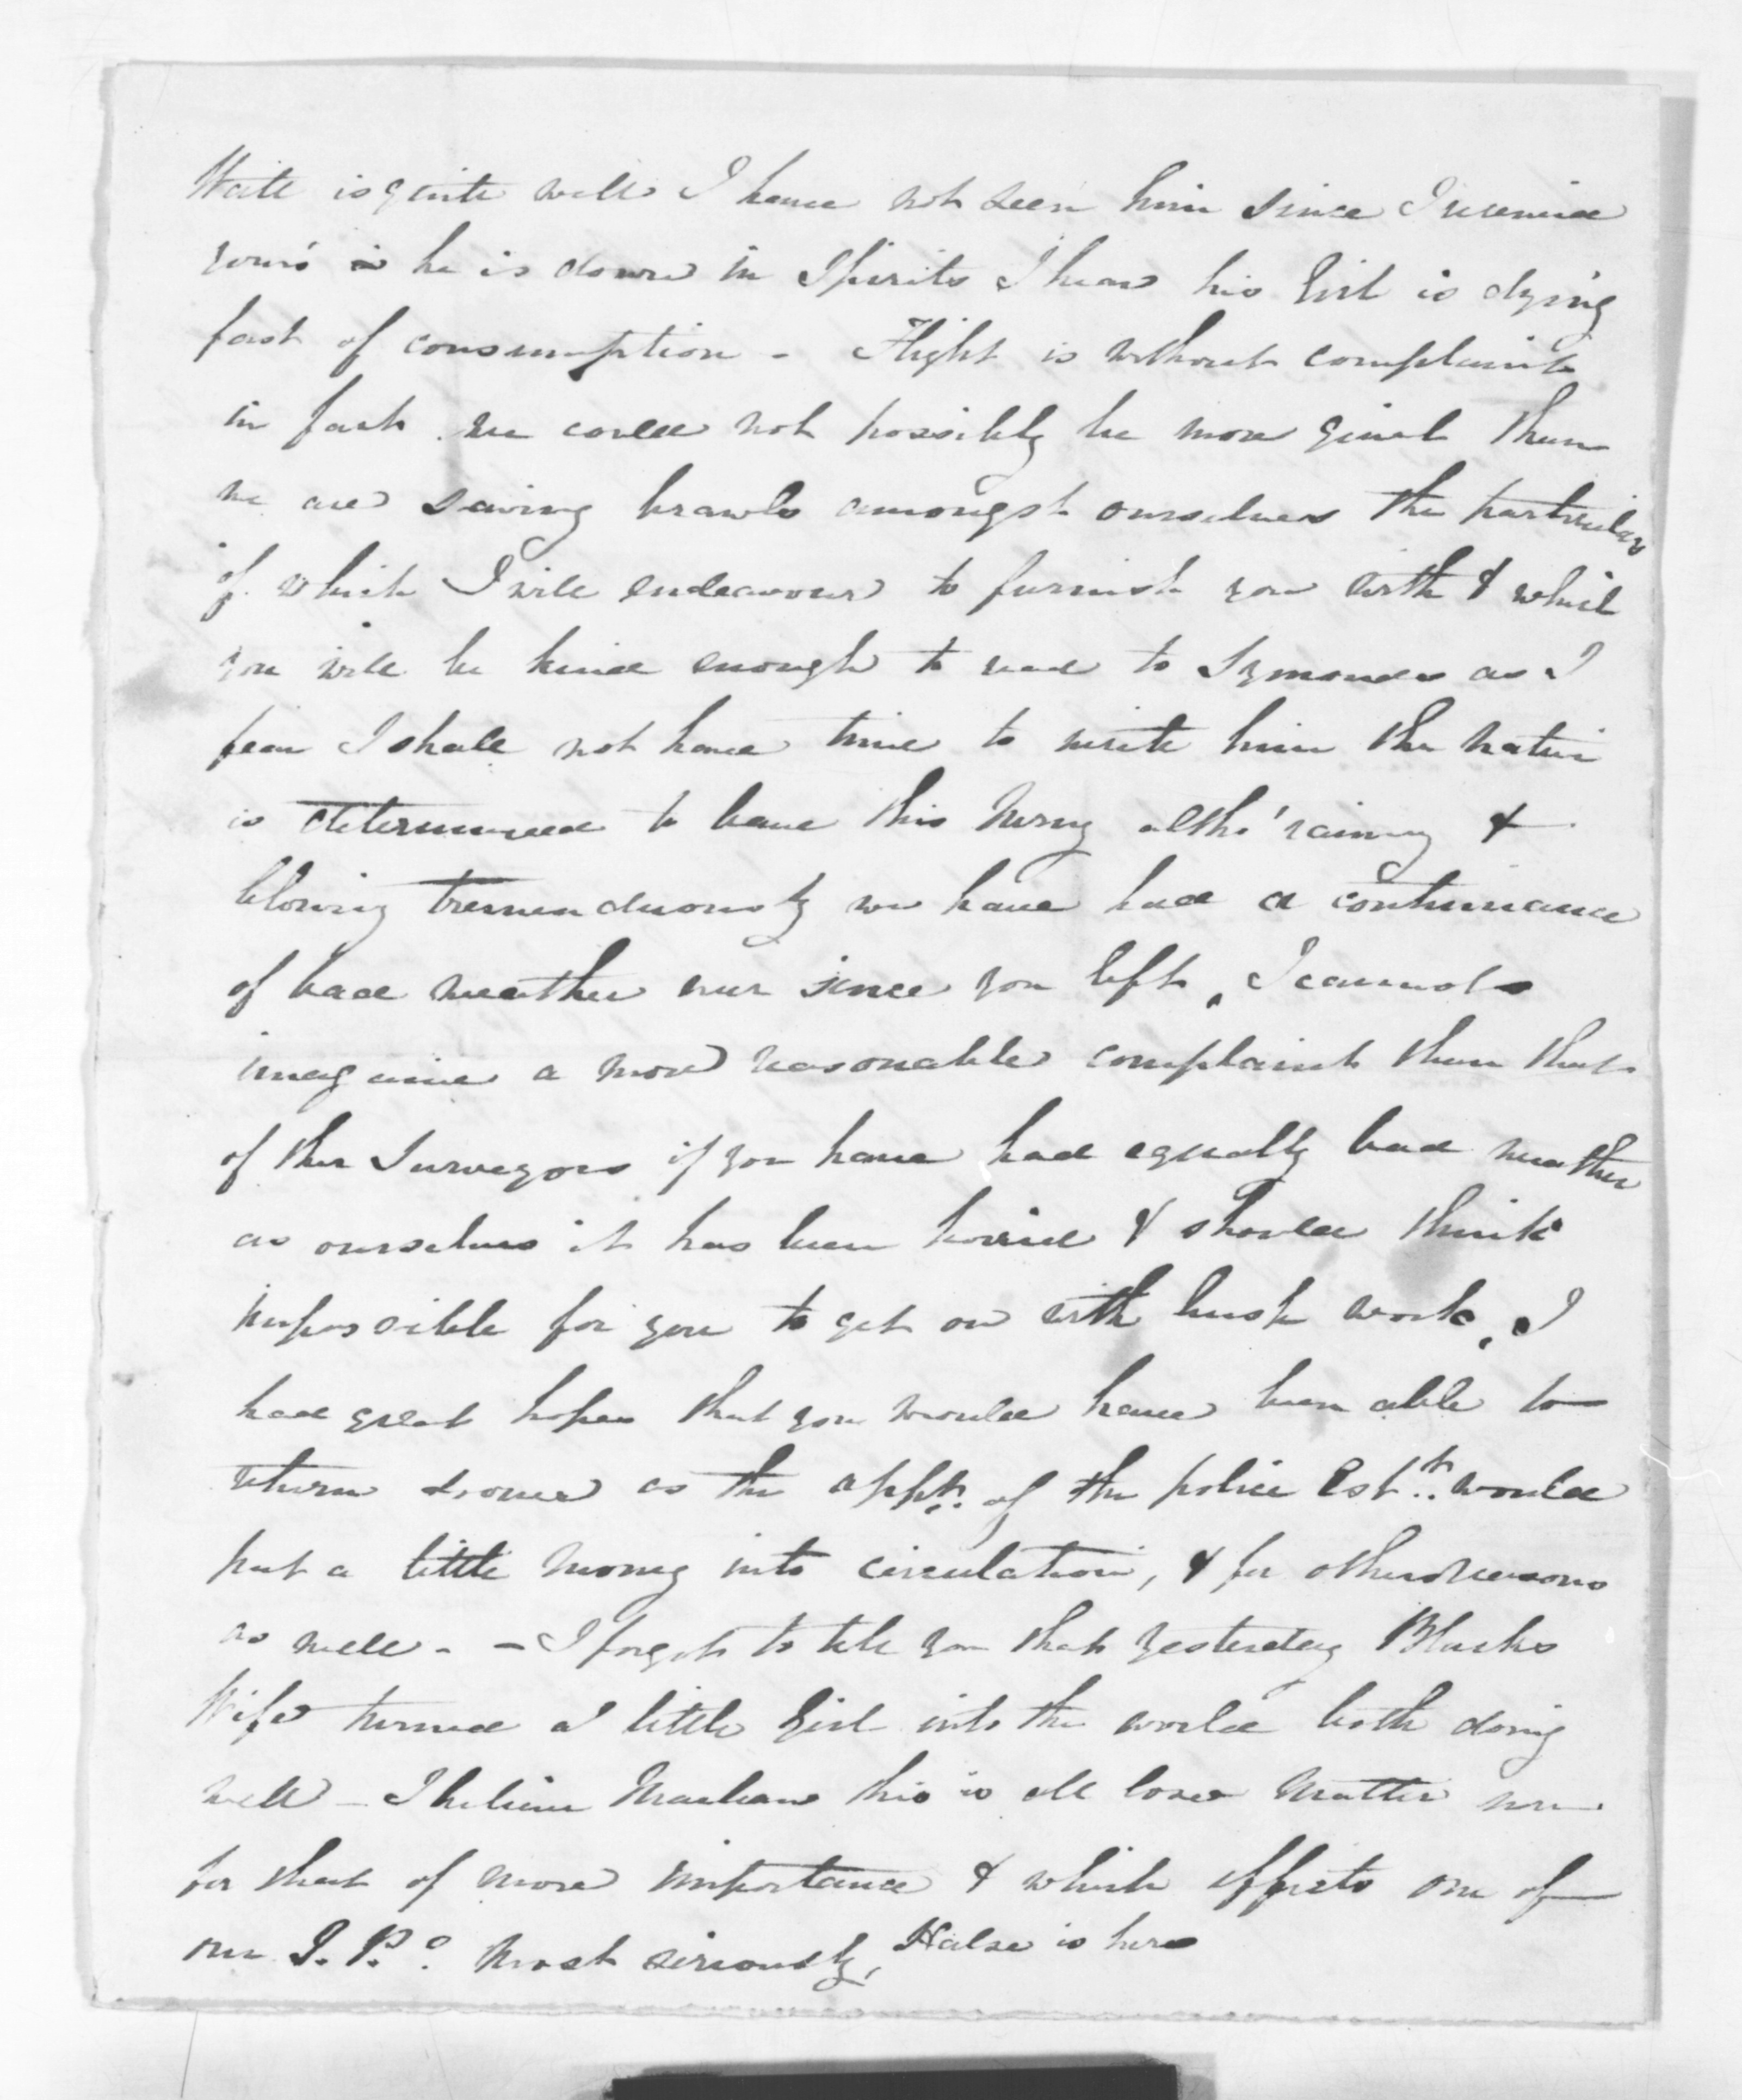 Wate is quite well I have not seen him since I received
yours he is down in Spirits I hear his Girl is dying
fast of consumption - Flight is without complaint
in fact we could not possibly be more quiet than
we are saving brawls amongst ourselves the particulars
of which I will endeavour to furnish you with & which
you will be kind enough to read to Symonds as I
fear I shall not have time to write him the native
is determined to leave this Morng altho' raining &
blowing tremenduously we have had a continuance
of bad weather ever since you left, I cannot
imagaine a more reasonable complaint than that
of the Surveyors if you have had equally bad weather
as ourselves it has been horrid & should think
impossible for you to get on with bush work, I
had great hopes that you would have been able to
return sooner as the appt. of the police Estt. would
put a little money into circulation, & for other reasons
as well - - I forgot to tell you that yesterday
Wife turned a little Girl into the world both doing
well - I believe this is all loose matter now
for that of more importance & which effects one of
our J. P.s most seriously, Halse is here